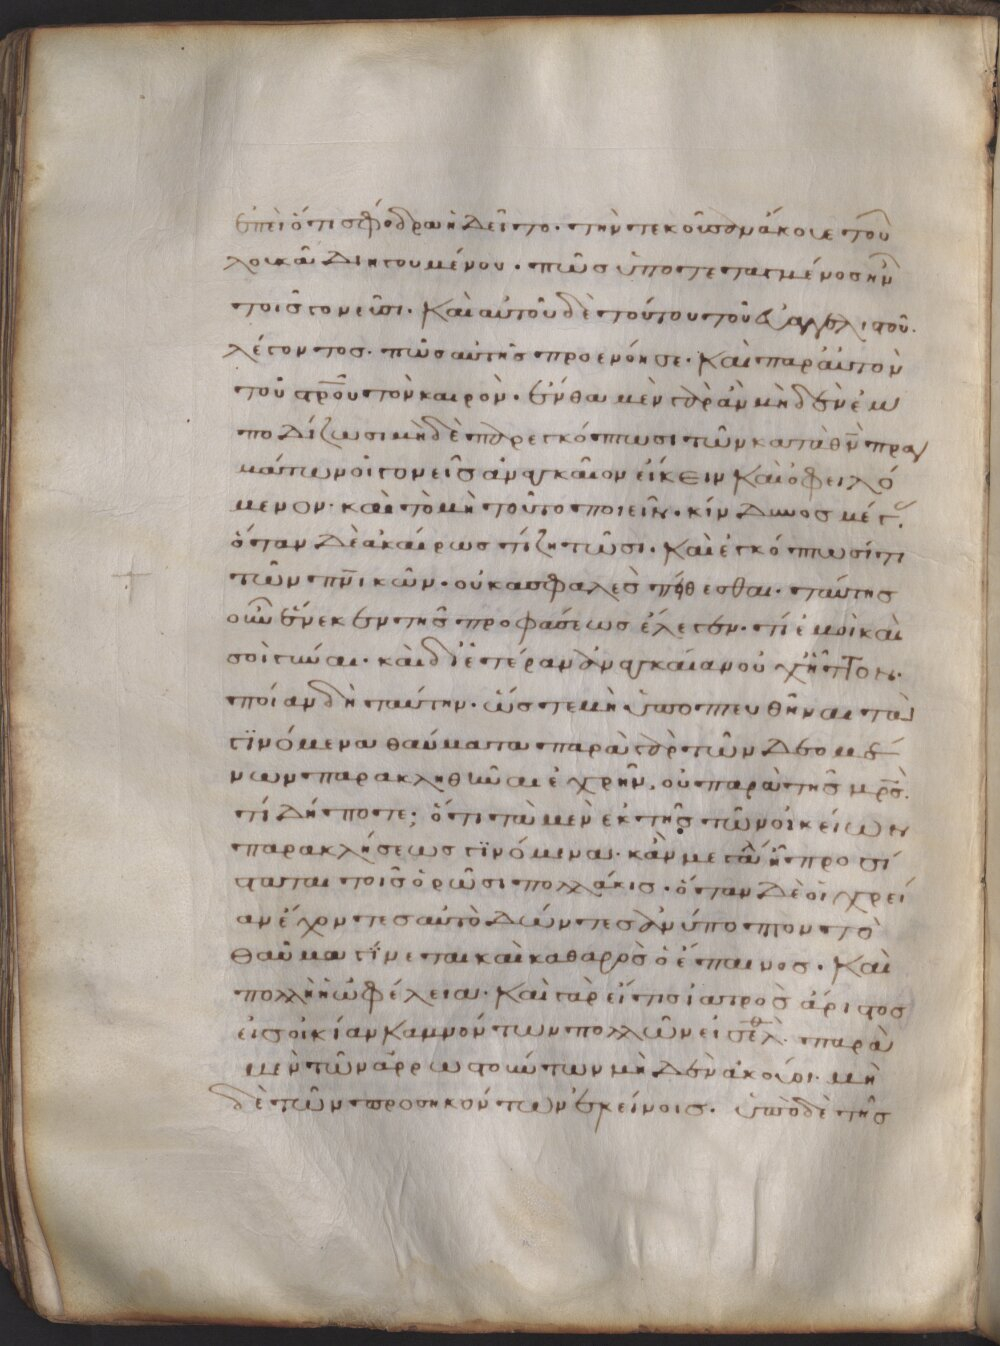 ἐπεὶ ὅτι σφόδρα ἠδεῖτο· τὴν τεκοῦσαν ἄκουε τοῦ
λουκᾶ διηγουμένου· πῶς ὑποτεταγμένος ἦν
τοῖς γονεῦσι· καὶ αὐτοῦ δὲ τούτου τοῦ εὐαγγελιστοῦ
λέγοντος· πῶς αὐτῆς προενόησε· καὶ παρ' αὐτὸν
τοῦ στροῦ τὸν καιρὸν· ἔνθα μὲν γὰρ ἂν μηδὲν ἐμ
ποδίζωσι μηδὲ παρεγκόπτωσι τῶν κατὰ θν πραγ
μάτων οἱ γονεῖς ἀναγκαῖον εἴκειν καὶ ὀφειλό
μενον· καὶ τὸ μὴ τοῦτο ποιεῖν· κίνδυνος μέγ
ὅταν δὲ ἀκαίρως τί ζητῶσι· καὶ ἐγκόπτωσί τι
τῶν πνικῶν· οὐκ ἀσφαλὲς πείθεσθαι· ταύτης
οὖν ἕνεκεν τῆς προφάσεως ἔλεγεν· τί ἐμοὶ καὶ
σοὶ γύναι· καὶ δι' ἑτέραν ἀναγκαίαν οὐχ ἧττον·
ποίαν δὴ ταύτην· ὥστε μὴ ὑποπτευθῆναι τὰ
γινόμενα θαύματα παρὰ γὰρ τῶν δεομέ
νων παρακληθῆναι ἐχρῆν, οὐ παρὰ τῆς μρς·
τί δήποτε; ὅτι τὰ μὲν ἐκ τῆς τῶν οἰκείων
παρακλήσεως γινόμενα· κἂν μεγάλα ἦ προσί
σταται τοῖς ὁρῶσι πολλάκις· ὅταν δὲ οἱ χρεί
αν ἔχοντες αὐτὸ δώντες ἀνύποπτον τὸ
θαῦμα γίνεται καὶ καθαρὸς ὁ ἔπαινος· καὶ
πολλὴ ἡ ὠφέλεια· καὶ γὰρ εἴ τις ἰατρὸς ἄριστος
εἰς οἰκίαν καμνόντων πολλῶν εἰσελθ· παρὰ
μὲν τῶν ἀρρωστούντων μηδὲν ἀκούοι· μη
δὲ τῶν προσηκόντων ἐκείνοις· ὑπὸ δὲ τῆς